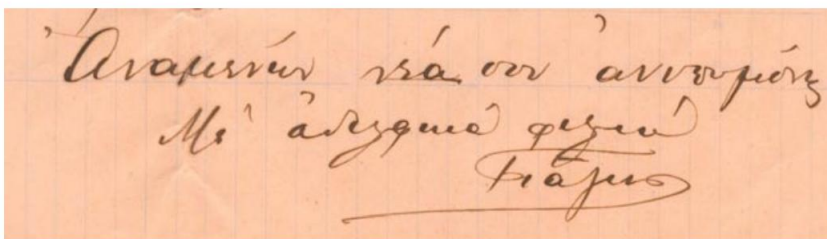 Ἀναμένων νέα σου ἀνυπομόνως
Μὲ ἀδελφικὰ φιλιὰ